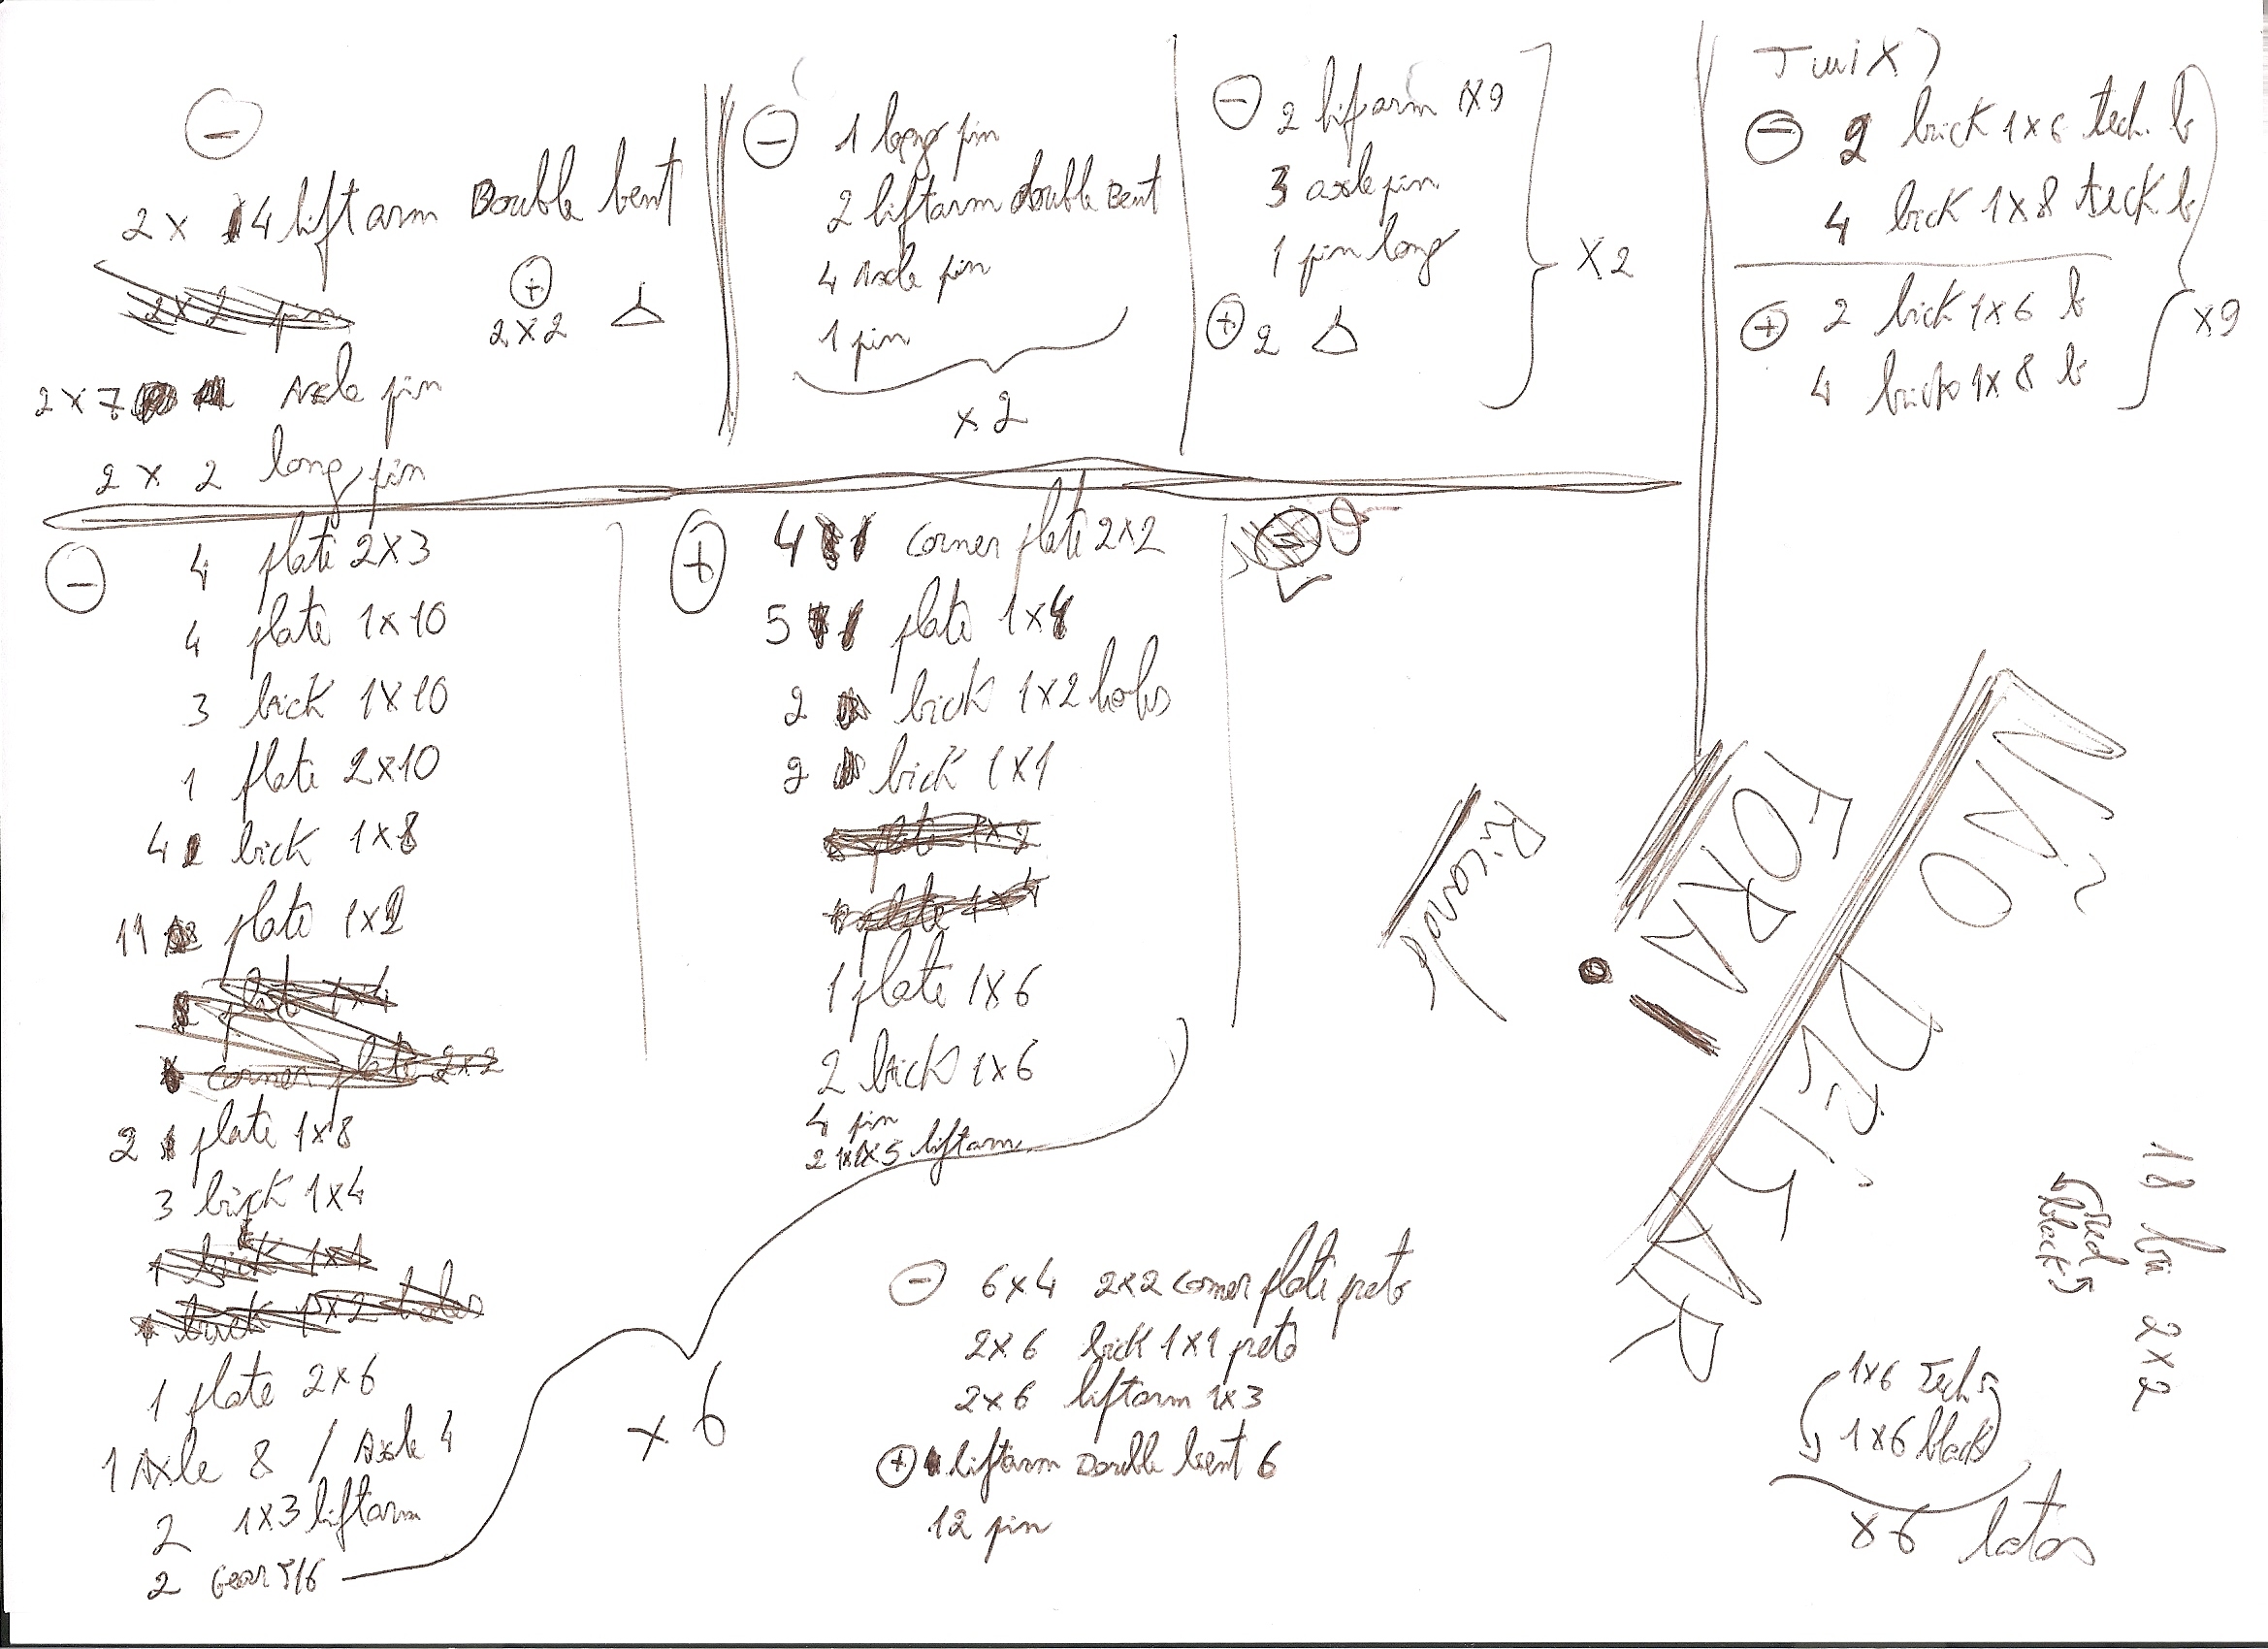 ⊖
2 x 4 liftarm Double bent
2x2 pin
⊕
2x2
2x7 Axle pin
2 x 2 long pin
⊖ 1 long pin
2 liftarm double bent
4 Axle pin
1 pin
x 2
⊖ 2 lifarm 1x9
3 axle pin
1 pin long
⊕ 2
x2
Twix
⊖ 2 brick 1x6 tech. b
4 brick 1x8 teck b
⊕ 2 brick 1x6 b
4 brick 1x8 b
x9
⊖ 4 plate 2x3
4 plate 1x10
3 brick 1x10
1 plate 2x10
4 brick 1x8
11 plate 1x2
plate 1x4
corner plate 2x2
2 plate 1x8
3 brick 1x4
1 brick 1x1
brick 1x2 holes
1 plate 2x6
1 Axle 8 / Axle 4
2 1x3 liftarm
2 Gear
⊕ 4 corner plate 2x2
5 plate 1x4
2 brick 1x2 holes
2 brick 1x1
plate 1x2
plate 1x4
1 plate 1x6
2 brick 1x6
4 pin
2 1x5 liftarm
x 6
⊖ 6x4 2x2 corner plate preto
2x6 brick 1x1 preto
2x6 liftarm 1x3
⊕ liftarm Double bent 6
12 pin
Ricardo
NÃO DEITAR
FORA!
18 2x2
red
black
1x6 Tech
1x6 black
x6 latas